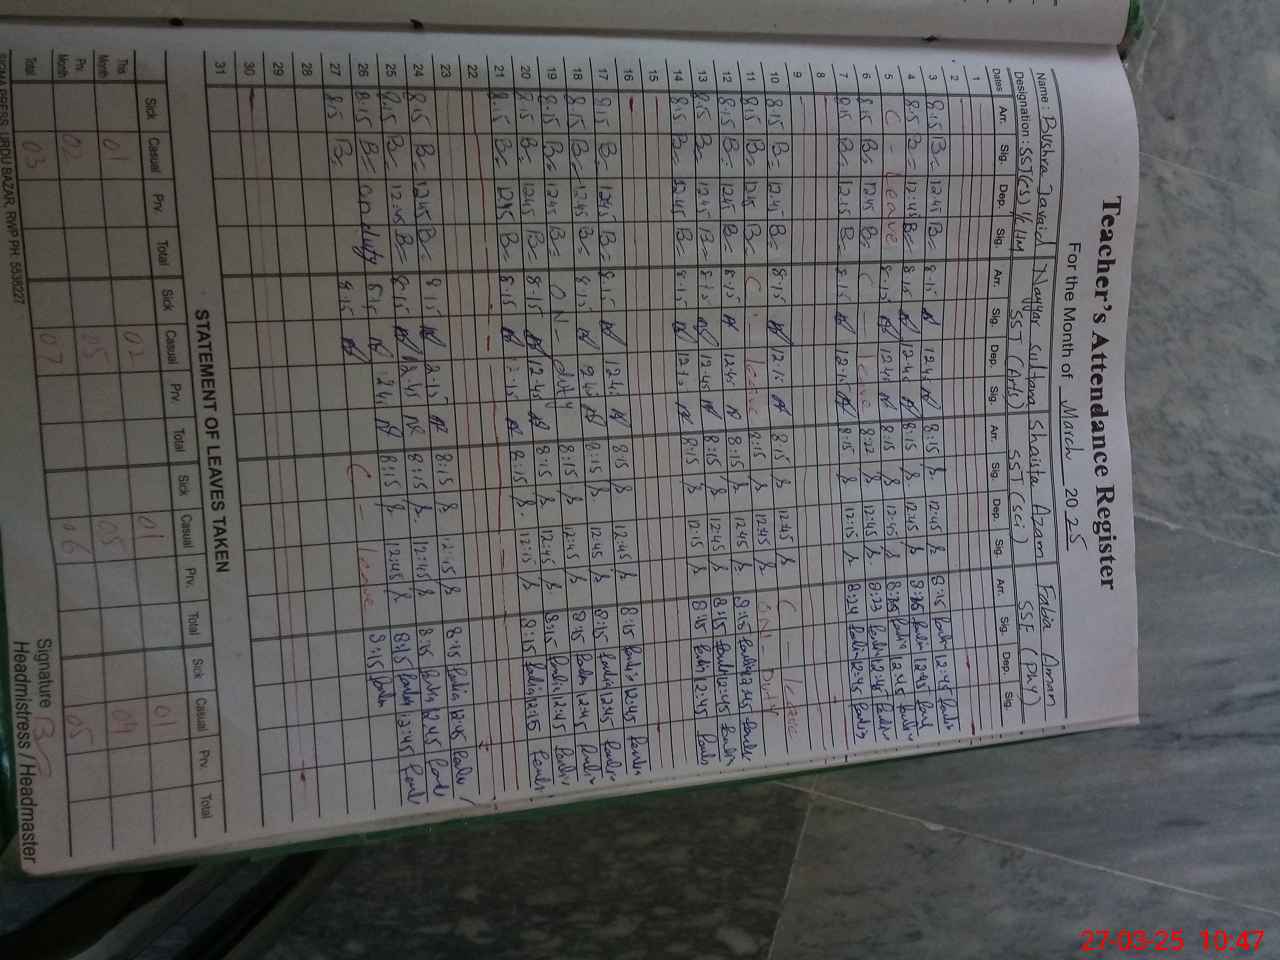 Teacher's Attendance Register
For the Month of March 2025
Name: Bushra Javaid Nayyar Sultana Shaista Azam Fabia Aman
Designation: SST(CS) I/C HM SST (Arts) SST (Sci) SST (Phy)
Dates Arr. Sig. Dep. Sig. Arr. Sig. Dep. Sig. Arr. Sig. Dep. Sig. Arr. Sig. Dep. Sig.
1
2
3 8:15 12:45 8:15 12:45 8:15 12:45 8:15 12:45
4 8:15 12:45 8:15 12:45 8:15 12:45 12:45
5 C - Leave 8:15 12:45 8:22 12:45 12:45
6 8:15 12:45 C - Leave 12:45 8:23 12:45
7 8:15 12:15 8:15 12:15 8:15 12:15 8:24 12:45
8
9
10 8:15 12:45 8:15 12:15 8:15 12:45 C - Leave
11 8:15 12:45 C - Leave 8:15 12:45 ON - Duty
12 8:15 12:45 8:15 12:45 8:15 12:45 8:15 12:45
13 8:15 12:45 8:15 12:45 8:15 12:45 8:15 12:15
14 8:15 12:45 8:15 8:15 12:15 8:15 12:45
15
16
17 8:15 12:45 8:15 12:45 8:15 12:45 8:15 12:45
18 8:15 12:45 8:15 8:15 12:45 8:15 12:45
19 8:15 12:45 ON - duty 8:15 12:45 8:15 12:45
20 8:15 12:45 8:15 12:45 8:15 12:45 8:15 12:45
21 8:15 12:45 8:15 8:15 12:15 8:15 12:15
22
23
24 8:15 12:45 8:15 8:15 12:45 8:15 12:45
25 8:15 12:45 8:15 12:45 8:15 12:45 8:15 12:45
26 8:15 on duty 8:15 8:15 12:45 8:15 12:45
27 8:15 8:15 C - Leave 8:15
28
29
30
31
STATEMENT OF LEAVES TAKEN
Sick Casual Prv. Total Sick Casual Prv. Total Sick Casual Prv. Total Sick Casual Prv. Total
This Month 01 02 01 01
Prv. Month 02 05 05 04
Total 03 07 06 05
Signature
Headmistress / Headmaster
SIGMA PRESS, URDU BAZAR, RWP PH: 5538227
27-03-25 10:47